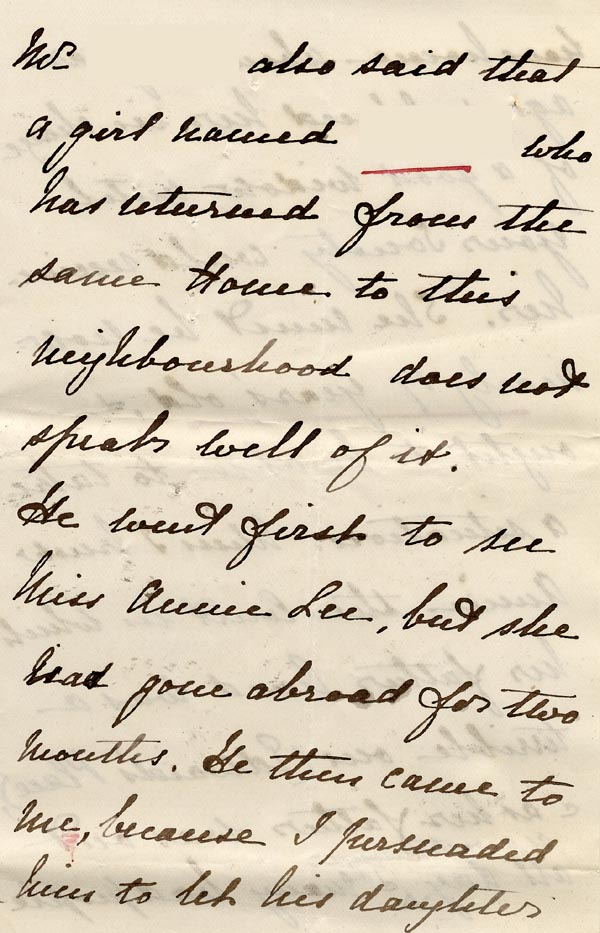 Mr also said that
a girl named who
has returned from the
same Home to this
neighbourhood does not
speak well of it.
He went first to see
Miss Annie Lee, but she
had gone abroad for two
months. He then came to
me, because I persuaded
him to let his daughter